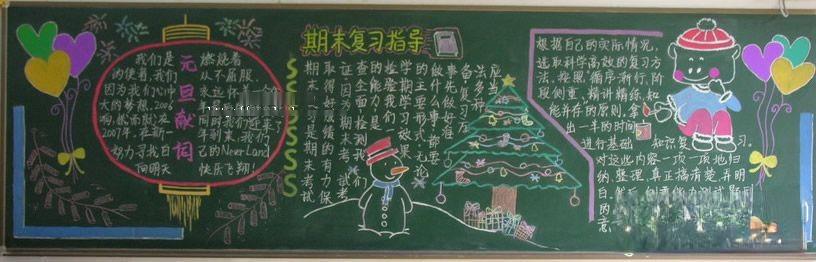 元旦献词
我们是 燃烧着
的使者,我们 从不屈服,
因为我们心中 永远怀
大的梦想,2006
倒,然而就在 同时我们还拿了
2007年,在新一 年到来,我们
努力寻找自 己的New Land
向明天 快乐飞翔!
期末复习指导
期末复习是期末考试
取得好成绩的有力保
证,因为期末考试考
查全面检测我们
的能力,是
检验我们
学期学习效果
的主要形式,无论
做什么事都要
事先做好准
备,复习方
法多种
应当
根据自己的实际情况,
选取科学高效的复习方
法,按照“循序渐行,阶
段侧重,精讲精练,知
能并存”的原则,拿
出一半的时间
进行基础 知识复习.
对这些内容一项一项地归
纳、整理,真正搞清楚、弄明
白.